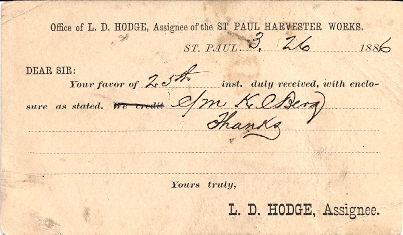 Office of L. D. HODGE, Assignee of the ST PAUL HARVESTER WORKS.
ST. PAUL 3, 26 1886
DEAR SIR:
Your favor of 25th inst. duly received, with enclo-
sure as stated. We credit c/m K. O Berg
Thanks
Yours truly,
L. D. HODGE, Assignee.